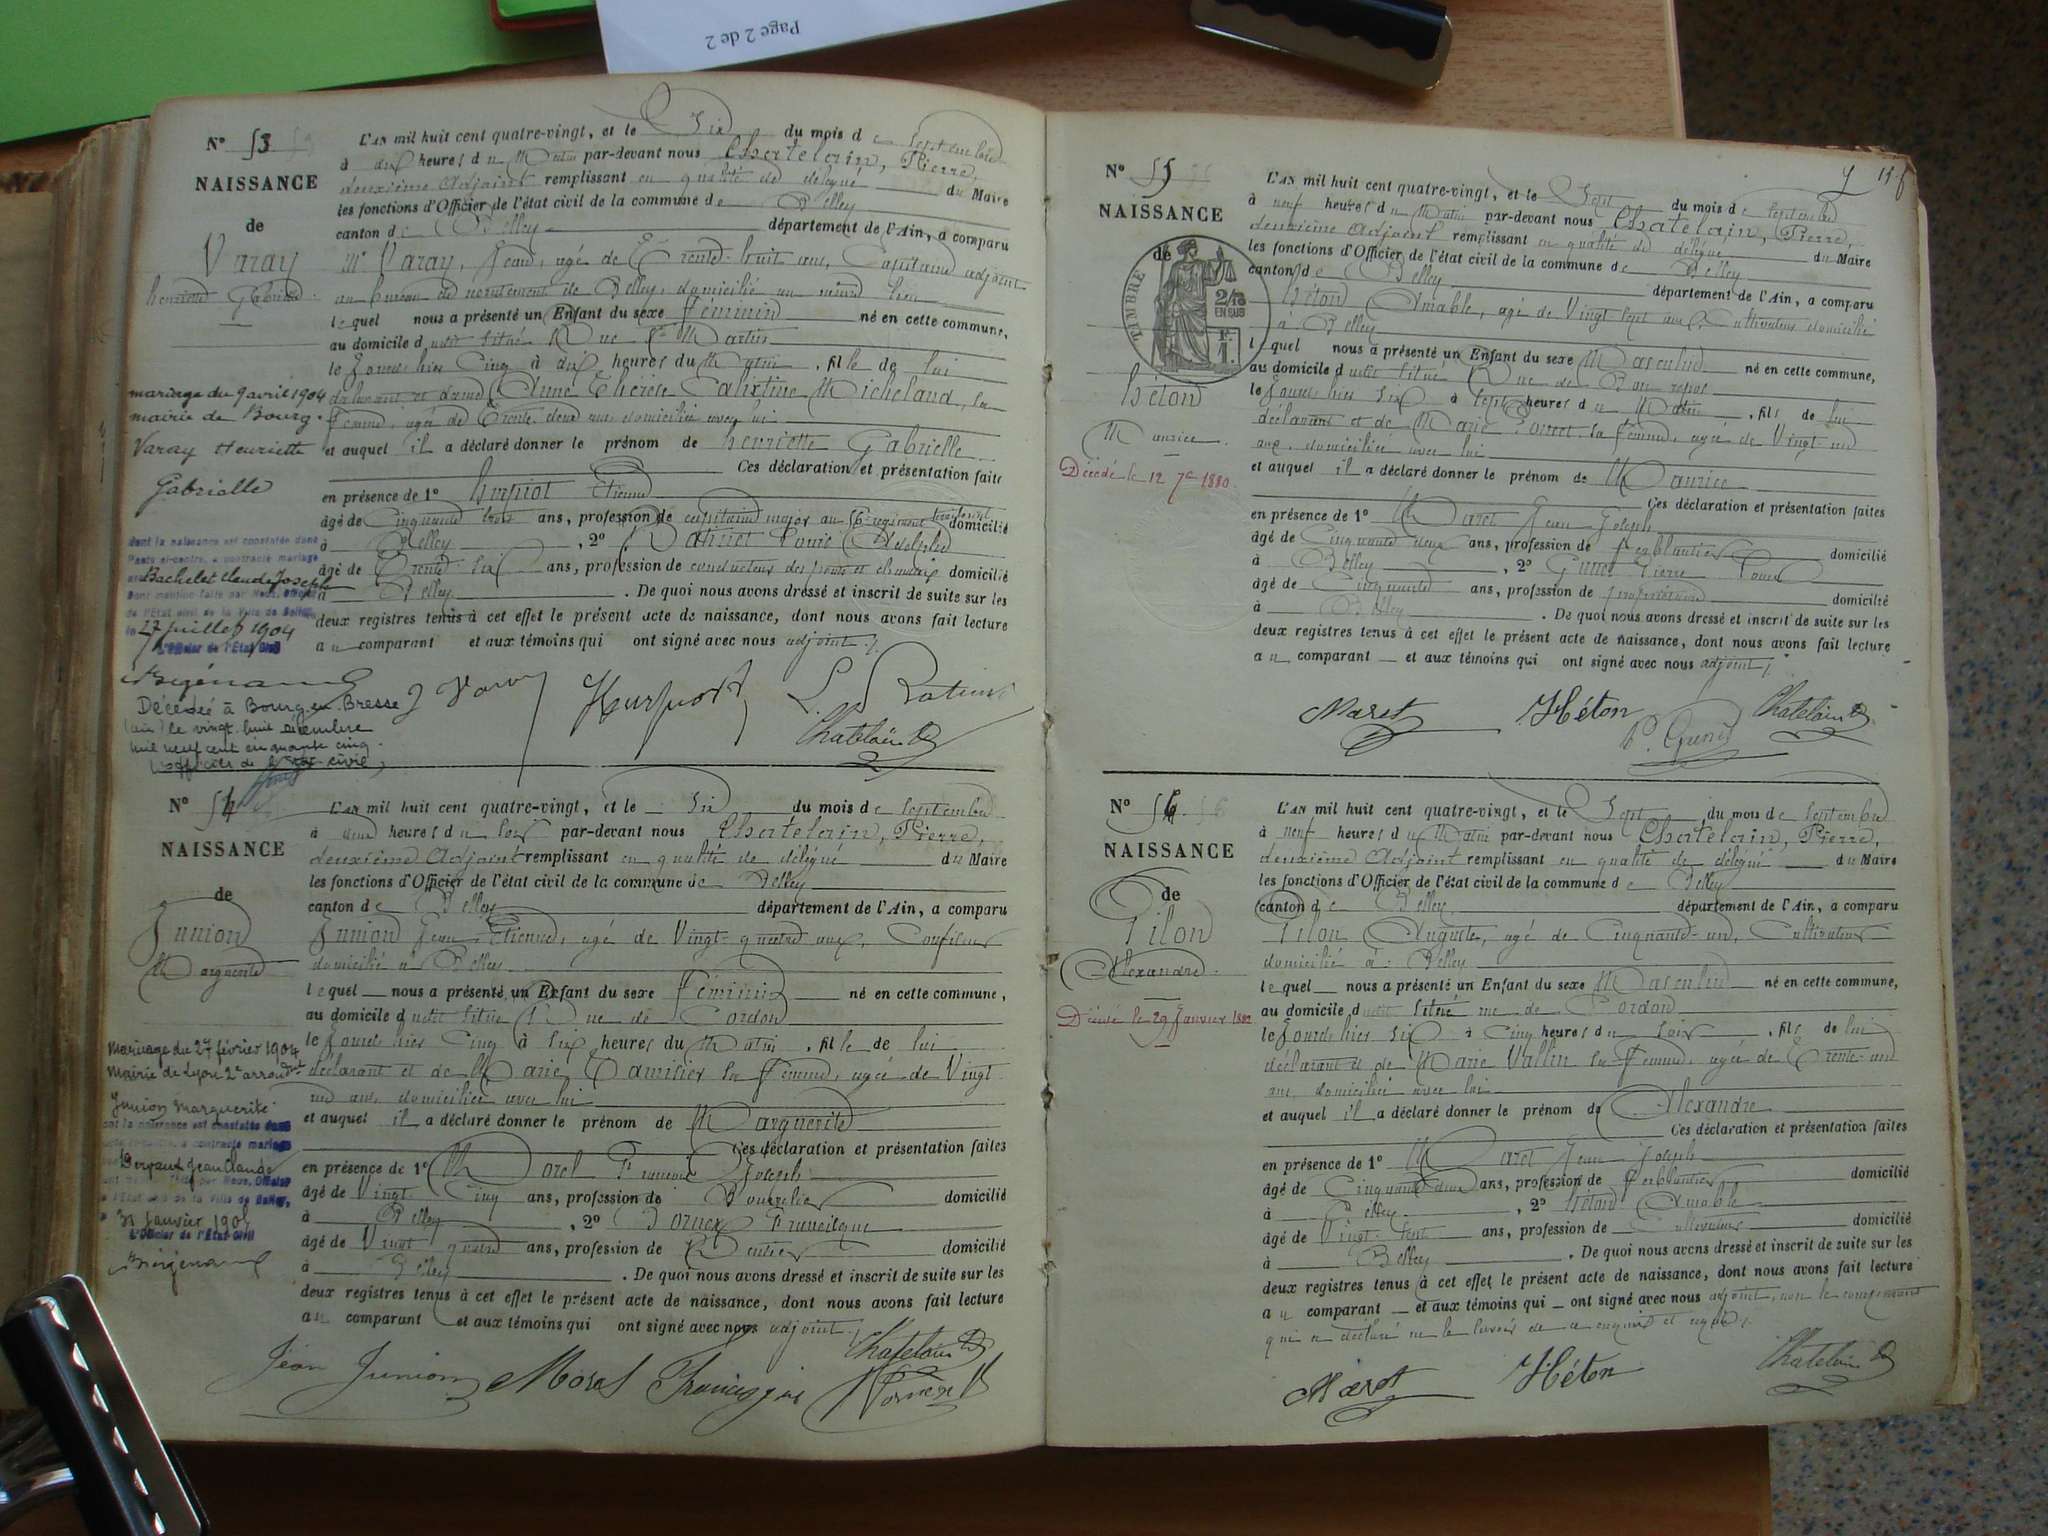 Page 2 de 2
N° 53
NAISSANCE
de
Varay
Henriette Gabrielle
L'AN mil huit cent quatre-vingt, et le Six du mois de Septembre
à dix heures du Matin par-devant nous Chatelain, Pierre,
deuxième Adjoint remplissant en qualité de délégué du Maire
les fonctions d'Officier de l'état civil de la commune de Belley
canton de Belley département de l'Ain, a comparu
Mr Varay, Jean, agé de Trente-huit ans, Capitaine adjoint
au bureau de recrutement de Belley, domicilié au même lieu
lequel nous a présenté un Enfant du sexe féminin né en cette commune,
au domicile d situé Rue St Martin
le Jourd'hier Cinq à dix heures du Matin, fille de lui
déclarant et de dame Anne Thérèse Calixtine Micheland, sa
femme, agée de Trente-deux ans domiciliée avec lui
et auquel il a déclaré donner le prénom de Henriette Gabrielle
Ces déclaration et présentation faites
en présence de 1° Etienne
âgé de Cinquante trois ans, profession de capitaine major au régiment domicilié
à Belley, 2° Louis Adolphe
âgé de Trente-six ans, profession de conducteur des ponts et chaussées domicilié
à Belley. De quoi nous avons dressé et inscrit de suite sur les
deux registres tenus à cet effet le présent acte de naissance, dont nous avons fait lecture
au comparant et aux témoins qui ont signé avec nous adjoint
mariage du 9 avril 1904
mairie de Bourg
Varay Henriette
Gabrielle
dont la naissance est constatée dans
l'acte ci-contre, a contracté mariage
avec Bachelet Claude Joseph
Dont mention faite par Nous, Officier
de l'Etat civil de la Ville de Belley,
le 27 juillet 1904
L'Officier de l'Etat Civil
Décédée à Bourg-en-Bresse
(ain) le vingt huit décembre
mil neuf cent cinquante cinq
L'officier de l'état civil,
J Varay
Chatelain
N° 54
NAISSANCE
de
Junion
Marguerite
L'AN mil huit cent quatre-vingt, et le Six du mois de Septembre
à deux heures du soir par-devant nous Chatelain, Pierre,
deuxième Adjoint remplissant en qualité de délégué du Maire
les fonctions d'Officier de l'état civil de la commune de Belley
canton de Belley département de l'Ain, a comparu
Junion Jean Etienne, agé de Vingt-quatre ans, Confiseur
domicilié à Belley
lequel nous a présenté un Enfant du sexe féminin né en cette commune,
au domicile d situé Rue de Cordon
le Jourd'hier Cinq à six heures du Matin, fille de lui
déclarant et de Marie Tamisier sa femme, agée de Vingt
ans, domiciliée avec lui
et auquel il a déclaré donner le prénom de Marguerite
Ces déclaration et présentation faites
en présence de 1° Morel François Joseph
âgé de Vingt-Cinq ans, profession de Bourrelier domicilié
à Belley, 2° Francisque
âgé de Vingt quatre ans, profession de domicilié
à Belley. De quoi nous avons dressé et inscrit de suite sur les
deux registres tenus à cet effet le présent acte de naissance, dont nous avons fait lecture
au comparant et aux témoins qui ont signé avec nous adjoint
Mariage du 27 février 1904
Mairie de Lyon 2e arrondt
Junion Marguerite
dont la naissance est constatée dans
l'acte ci-contre, a contracté mariage
Jean Claude
Dont mention faite par Nous, Officier
de l'Etat civil de la Ville de Belley,
31 Janvier
L'Officier de l'Etat Civil
Jean Junion Morel Francisque
Chatelain
N° 55
NAISSANCE
de
TIMBRE
2/10
EN SUS
1 F.
Héton
Maurice
Décédé le 12 7bre 1880
L'AN mil huit cent quatre-vingt, et le Sept du mois de septembre
à neuf heures du Matin par-devant nous Chatelain, Pierre,
deuxième Adjoint remplissant en qualité de délégué du Maire
les fonctions d'Officier de l'état civil de la commune de Belley
canton de Belley département de l'Ain, a comparu
Héton Amable, agé de Vingt-sept ans, Cultivateur domicilié
à Belley
lequel nous a présenté un Enfant du sexe Masculin né en cette commune,
au domicile d situé Rue de Bon repos
le Jourd'hier Six à sept heures du Matin, fils de lui
déclarant et de Marie sa femme, agée de Vingt
ans, domiciliée avec lui
et auquel il a déclaré donner le prénom de Maurice
Ces déclaration et présentation faites
en présence de 1° Maret Jean Joseph
âgé de Cinquante deux ans, profession de ferblantier domicilié
à Belley, 2° Pierre
âgé de Cinquante ans, profession de propriétaire domicilié
à Belley. De quoi nous avons dressé et inscrit de suite sur les
deux registres tenus à cet effet le présent acte de naissance, dont nous avons fait lecture
au comparant et aux témoins qui ont signé avec nous adjoint
Maret Héton Chatelain
N° 56
NAISSANCE
de
Pilon
Alexandre
Décédé le 29 Janvier
L'AN mil huit cent quatre-vingt, et le Sept du mois de Septembre
à neuf heures du Matin par-devant nous Chatelain, Pierre,
deuxième Adjoint remplissant en qualité de délégué du Maire
les fonctions d'Officier de l'état civil de la commune de Belley
canton de Belley département de l'Ain, a comparu
Pilon Auguste, agé de Cinquante-un, Cultivateur
domicilié à Belley
lequel nous a présenté un Enfant du sexe Masculin né en cette commune,
au domicile d situé rue de Cordon
le Jourd'hier Six à Cinq heures du Soir, fils de lui
déclarant et de Marie Vallin sa femme, agée de Trente-un
ans, domiciliée avec lui
et auquel il a déclaré donner le prénom de Alexandre
Ces déclaration et présentation faites
en présence de 1° Maret Jean Joseph
âgé de Cinquante deux ans, profession de ferblantier domicilié
à Belley, 2° Héton Amable
âgé de Vingt-sept ans, profession de Cultivateur domicilié
à Belley. De quoi nous avons dressé et inscrit de suite sur les
deux registres tenus à cet effet le présent acte de naissance, dont nous avons fait lecture
au comparant et aux témoins qui ont signé avec nous adjoint, non le comparant
qui a déclaré ne le savoir de ce enquis et requis
Maret Héton Chatelain